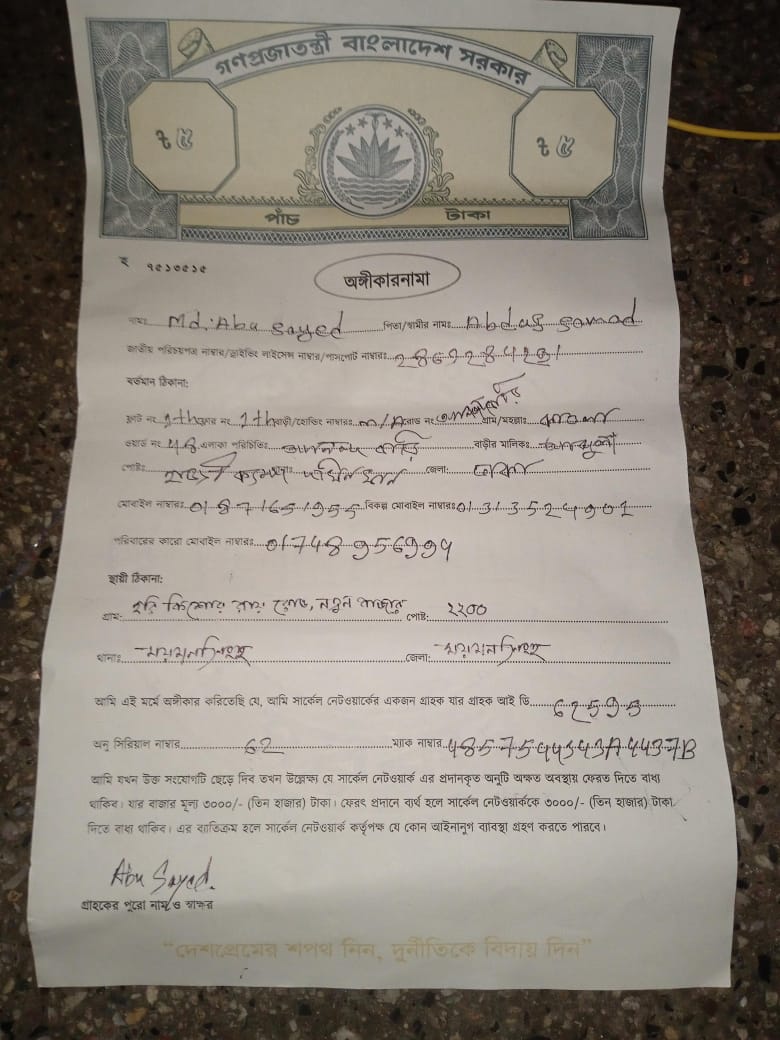 গণপ্রজাতন্ত্রী বাংলাদেশ সরকার
৳ ৫ ৳ ৫
পাঁচ টাকা
অঙ্গীকারনামা
নামঃ Md. Abu Sayed পিতা/স্বামীর নামঃ Abdus Samad
জাতীয় পরিচয়পত্র নাম্বার/ড্রাইভিং লাইসেন্স নাম্বার/পাসপোর্ট নাম্বারঃ
বর্তমান ঠিকানা:
ফ্ল্যাট নং 7th ফ্লোর নং 7th বাড়ী/হোল্ডিং নাম্বারঃ রোড নং গ্রাম/মহল্লাঃ
ওয়ার্ড নং 48 এলাকা পরিচিতিঃ বাড়ীর মালিকঃ
পোষ্টঃ জেলা: ঢাকা
মোবাইল নাম্বারঃ 01871651955 বিকল্প মোবাইল নাম্বারঃ 01313524901
পরিবারের কারো মোবাইল নাম্বারঃ
স্থায়ী ঠিকানা:
গ্রাম: হরি কিশোর রায় রোড, নতুন বাজার পোষ্ট: ২২০০
থানাঃ ময়মনসিংহ জেলা: ময়মনসিংহ
আমি এই মর্মে অঙ্গীকার করিতেছি যে, আমি সার্কেল নেটওয়ার্কের একজন গ্রাহক যার গ্রাহক আই ডি
অনু সিরিয়াল নাম্বার 62 ম্যাক নাম্বার 485754443A4437B
আমি যখন উক্ত সংযোগটি ছেড়ে দিব তখন উল্লেক্ষ্য যে সার্কেল নেটওয়ার্ক এর প্রদানকৃত অনুটি অক্ষত অবস্থায় ফেরত দিতে বাধ্য
থাকিব। যার বাজার মূল্য ৩০০০/- (তিন হাজার) টাকা। ফেরৎ প্রদানে ব্যর্থ হলে সার্কেল নেটওয়ার্ককে ৩০০০/- (তিন হাজার) টাকা
দিতে বাধ্য থাকিব। এর ব্যতিক্রম হলে সার্কেল নেটওয়ার্ক কর্তৃপক্ষ যে কোন আইনানুগ ব্যাবস্থা গ্রহণ করতে পারবে।
Abu Sayed.
গ্রাহকের পুরো নাম ও স্বাক্ষর
“দেশপ্রেমের শপথ নিন, দুর্নীতিকে বিদায় দিন”